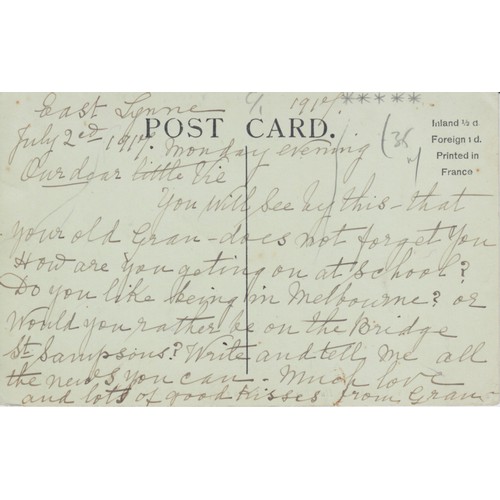 East Lynne 1917 *****
July 2ed, 1917. Monday evening
POST CARD.
Inland ½d.
Foreign 1d.
Printed in
France
Our dear little Vie
You will see by this - that
your old Gran - does not forget you
How are you geting on at School?
Do you like being in Melbourne? or
Would you rather be on the Bridge
St Sampsons? Write and tell me all
the news you can - Much love
and lots of good Kisses from Gran